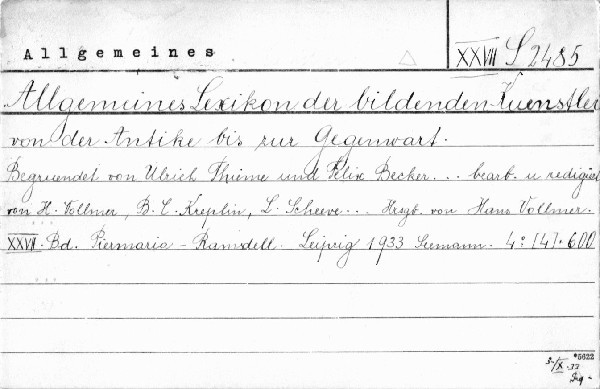 Allgemeines
XXVII S 2485
Allgemeines Lexikon der bildenden Kuenstler
von der Antike bis zur Gegenwart.
Begruendet von Ulrich Thieme und Felix Becker... bearb. u redigiert
von H. Vollmer, B. C. Kreplin, L. Scheewe... Hrsgb. von Hans Vollmer.
XXVII. Bd. Piermaria - Ramsdell. Leipzig 1933 Seemann. 4: [4]. 600
*5622
3-/X.33